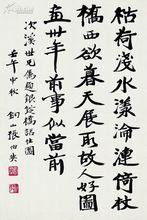 枯荷淺水漾淪漣倚杖
橋西欲暮天展取故人好圖
畫卅年前事似當前
次溪世兄屬題銀錠橋話往圖
壬午中秋 銅山張伯英